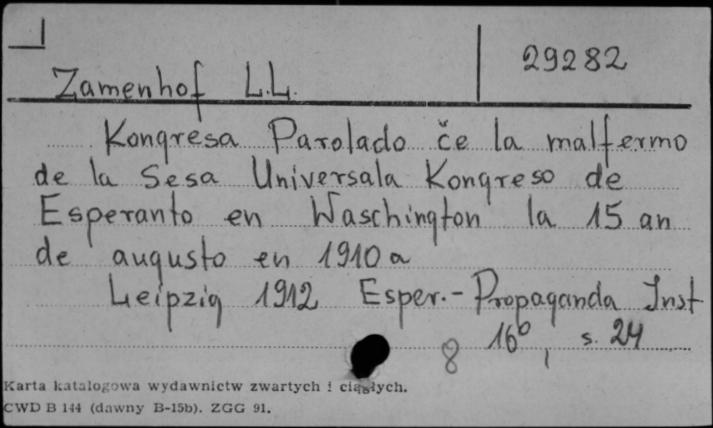 29282
Zamenhof L.L.
Kongresa Parolado če la malfermo
de la Sesa Universala Kongreso de
Esperanto en Waschington la 15 an
de augusto en 1910 a
Leipzig 1912 Esper.-Propaganda Inst
8 16⁰, s. 24
Karta katalogowa wydawnictw zwartych i ciągłych.
CWD B 144 (dawny B-15b). ZGG 91.